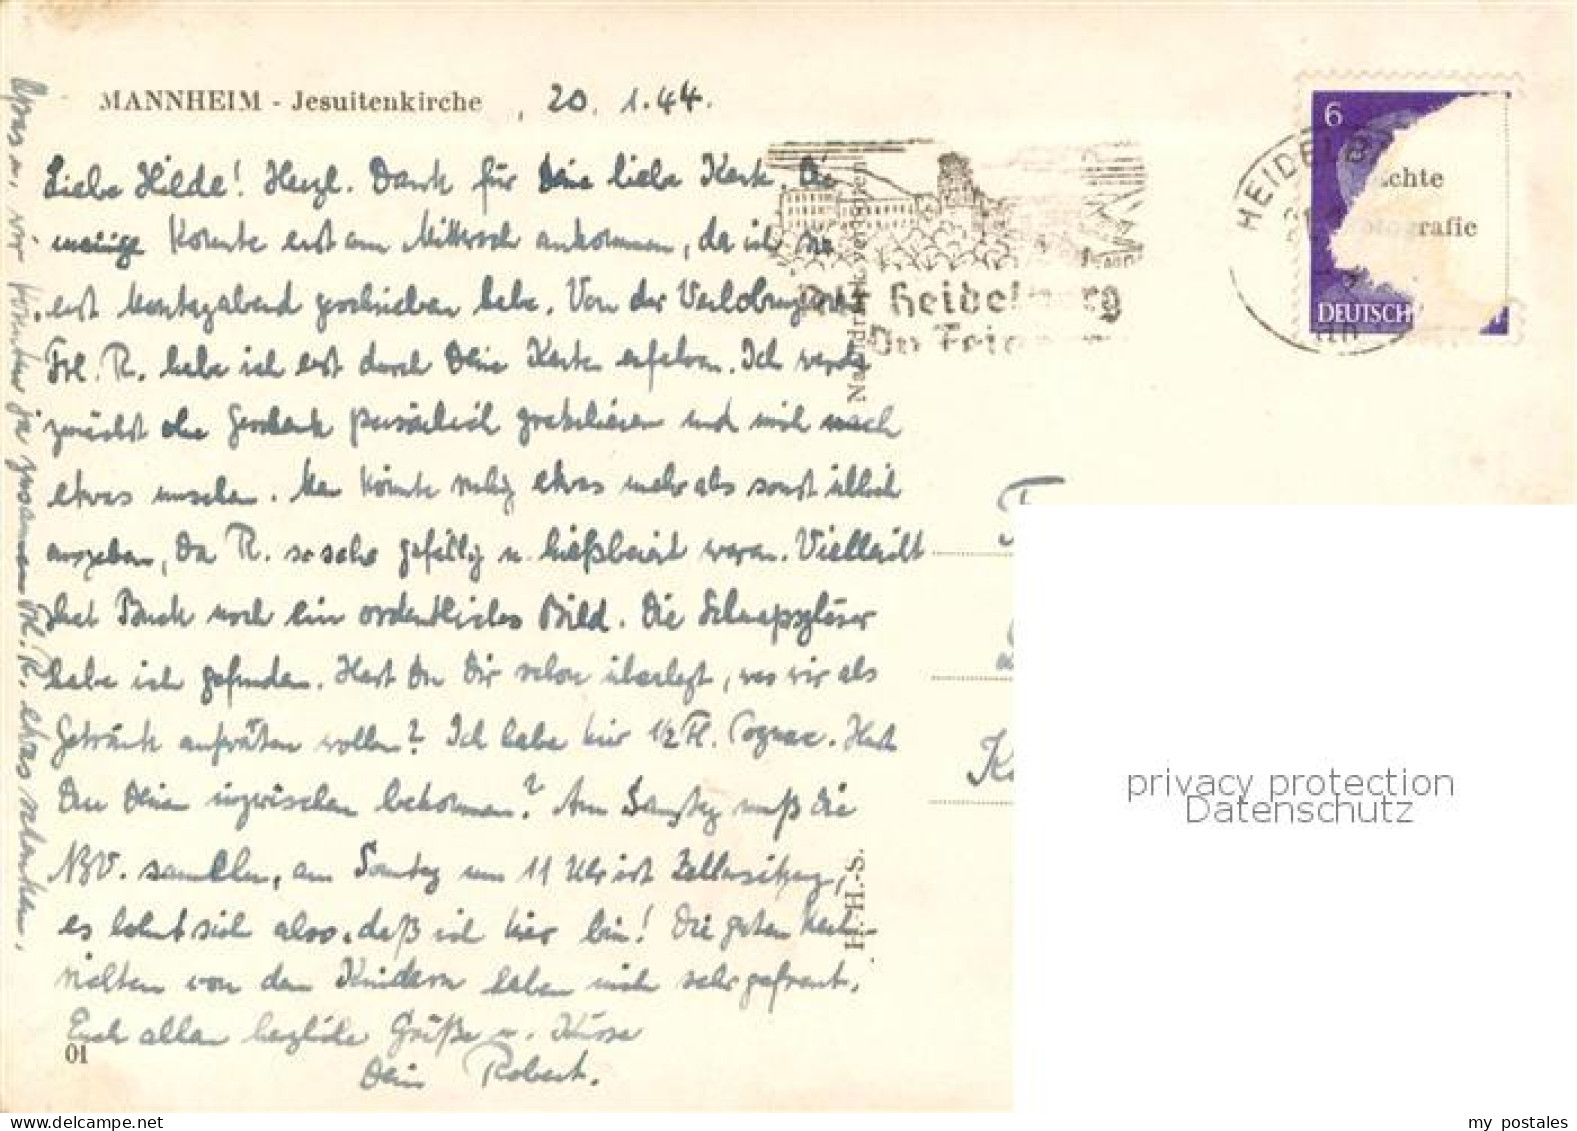 MANNHEIM - Jesuitenkirche, 20. 1. 44.
Liebe Hilde! Herzl. Dank für Deine liebe Karte. Die
meinige konnte erst am Mittwoch ankommen, da ich sie
erst Montagabend geschrieben habe. Von der Verlobung von
Frl. R. habe ich erst durch Deine Karte erfahren. Ich werde
zunächst ohne Geschenk persönlich gratulieren und mich nach
etwas umsehen. Man könnte ruhig etwas mehr als sonst üblich
ausgeben, da R. so sehr gefällig u. hilfsbereit waren. Vielleicht
hat Buck noch ein ordentliches Bild. Die Schnapsgläser
habe ich gefunden. Hast Du Dir schon überlegt, was wir als
Getränk aufwarten wollen? Ich habe hier 1/2 Fl. Cognac. Hast
Du Deine inzwischen bekommen? Am Samstag muß die
NSV. sammeln, am Sonntag um 11 Uhr ist Zellensitzung,
es lohnt sich also, daß ich hier bin! Die guten Nach-
richten von den Kindern haben mich sehr gefreut.
Euch allen herzliche Grüße u. Küsse
Dein Robert.
wir könnten ja zusammen Frl. R. etwas schenken.
01
Nachdruck verboten
H.-H.-S.
HEIDELB
Heidelberg
6
chte
tografie
DEUTSCH
privacy protection
Datenschutz
my postales